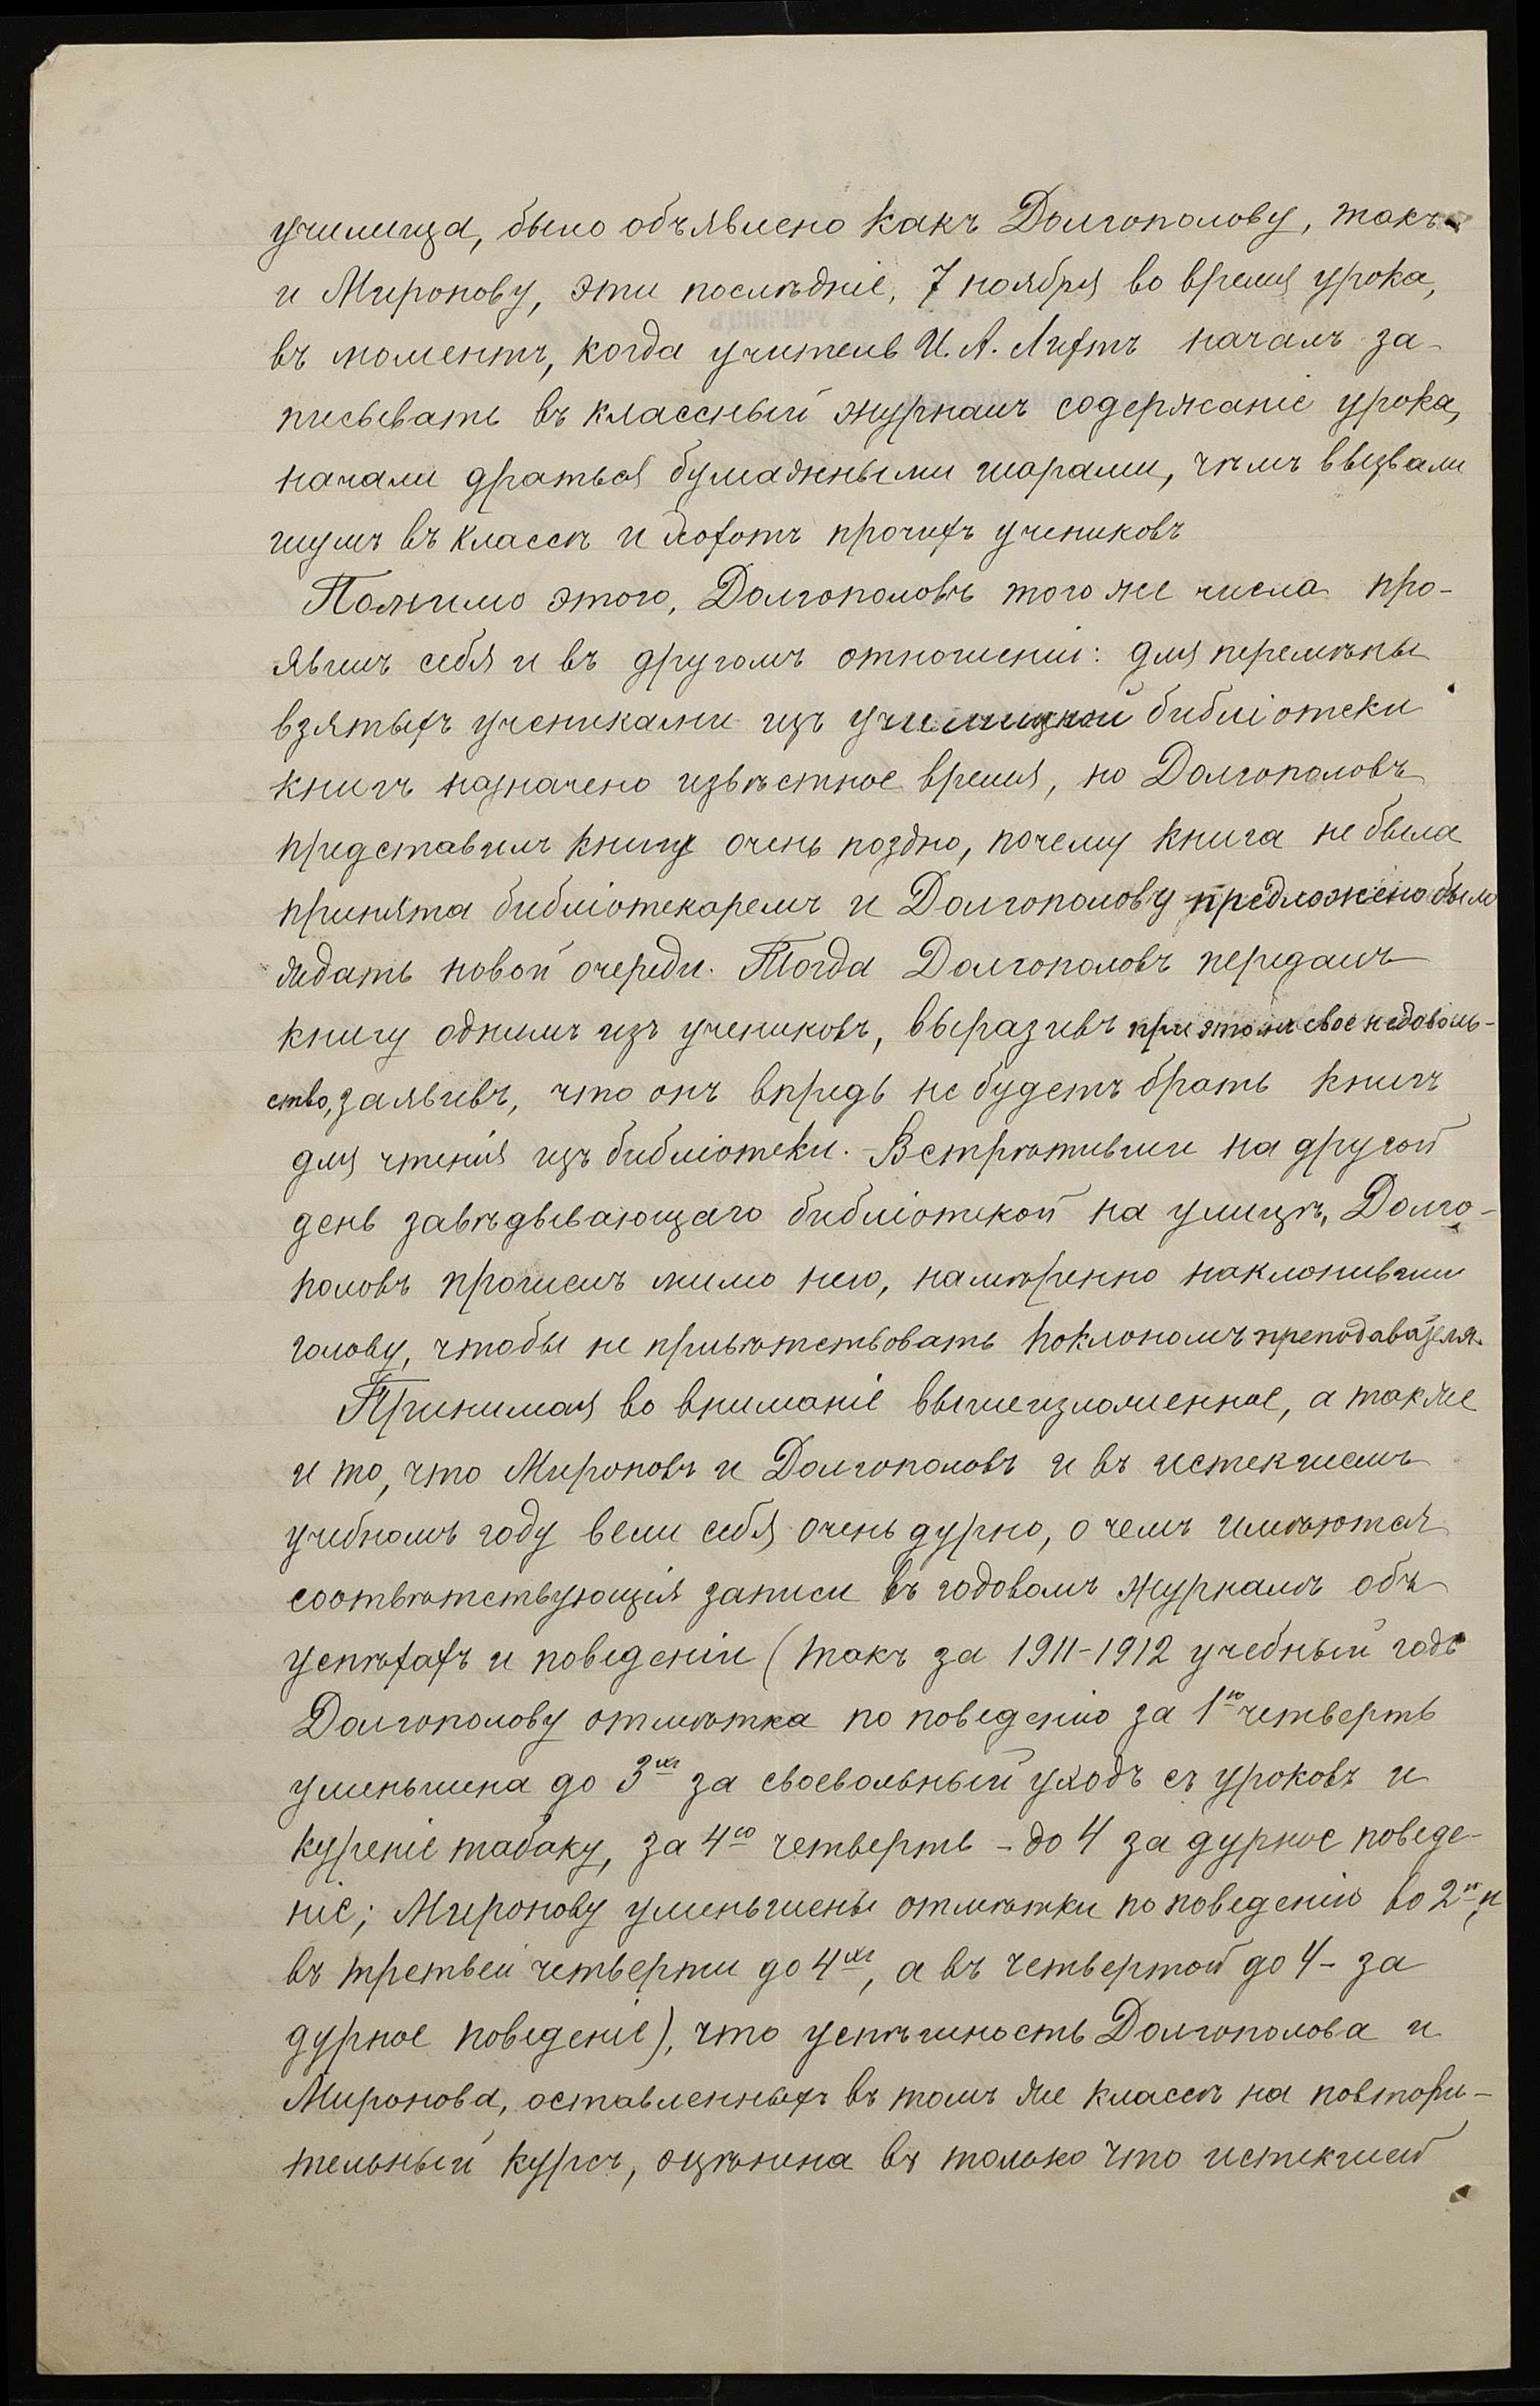 училища, было объявлено какъ Долгополову, такъ
и Миронову, эти послѣдніе, 7 ноября во время урока,
въ моментъ, когда учитель И. А. Лифтъ началъ за-
писывать въ классный журналъ содержаніе урока,
начали драться бумажными шарами, чѣмъ вызвали
шумъ въ классѣ и хохотъ прочихъ учениковъ
Помимо этого, Долгополовъ того же числа про-
явилъ себя и въ другомъ отношеніи: для перемѣны
взятыхъ учениками изъ училищной библіотеки
книгъ назначено извѣстное время, но Долгополовъ
представилъ книгу очень поздно, почему книга не была
принята библіотекаремъ и Долгополову предложено было
ждать новой очереди. Тогда Долгополовъ передалъ
книгу однимъ изъ учениковъ, выразивъ при этомъ свое недоволь-
ство, заявивъ, что онъ впредь не будетъ брать книгъ
для чтенія изъ библіотеки. Встрѣтивши на другой
день завѣдывающаго библіотекой на улицѣ, Долго-
половъ прошелъ мимо него, намѣренно наклонивши
голову, чтобы не привѣтствовать поклономъ преподавателя.
Принимая во вниманіе вышеизложенное, а также
и то, что Мироновъ и Долгополовъ и въ истекшемъ
учебномъ году вели себя очень дурно, о чемъ имѣются
соотвѣтствующія записи въ годовомъ журналѣ объ
успѣхахъ и поведеніи (такъ за 1911-1912 учебный годъ
Долгополову отмѣтка по поведенію за 1ю четверть
уменьшена до 3хъ за своевольный уходъ съ уроковъ и
куреніе табаку, за 4ю четверть - до 4 за дурное поведе-
ніе; Миронову уменьшены отмѣтки по поведенію во 2й и
въ третьей четверти до 4хъ, а въ четвертой до 4- за
дурное поведеніе), что успѣшность Долгополова и
Миронова, оставленныхъ въ томъ же классѣ на повтори-
тельный курсъ, оцѣнена въ только что истекшей